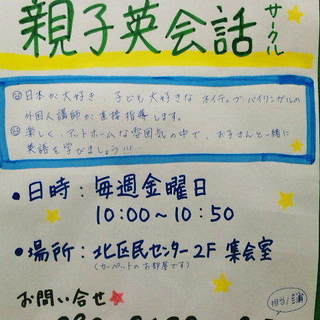 親子英会話サークル
日本が大好き 子ども大好きな ネイティブバイリンガルの
外国人講師が直接指導します。
楽しく、アットホームな雰囲気の中で、お子さんと一緒に
英語を学びましょう!!!
・日時:毎週金曜日
10:00~10:50
・場所:北区民センター2F 集会室
(カーペットのお部屋です)
お問い合せ
担当/